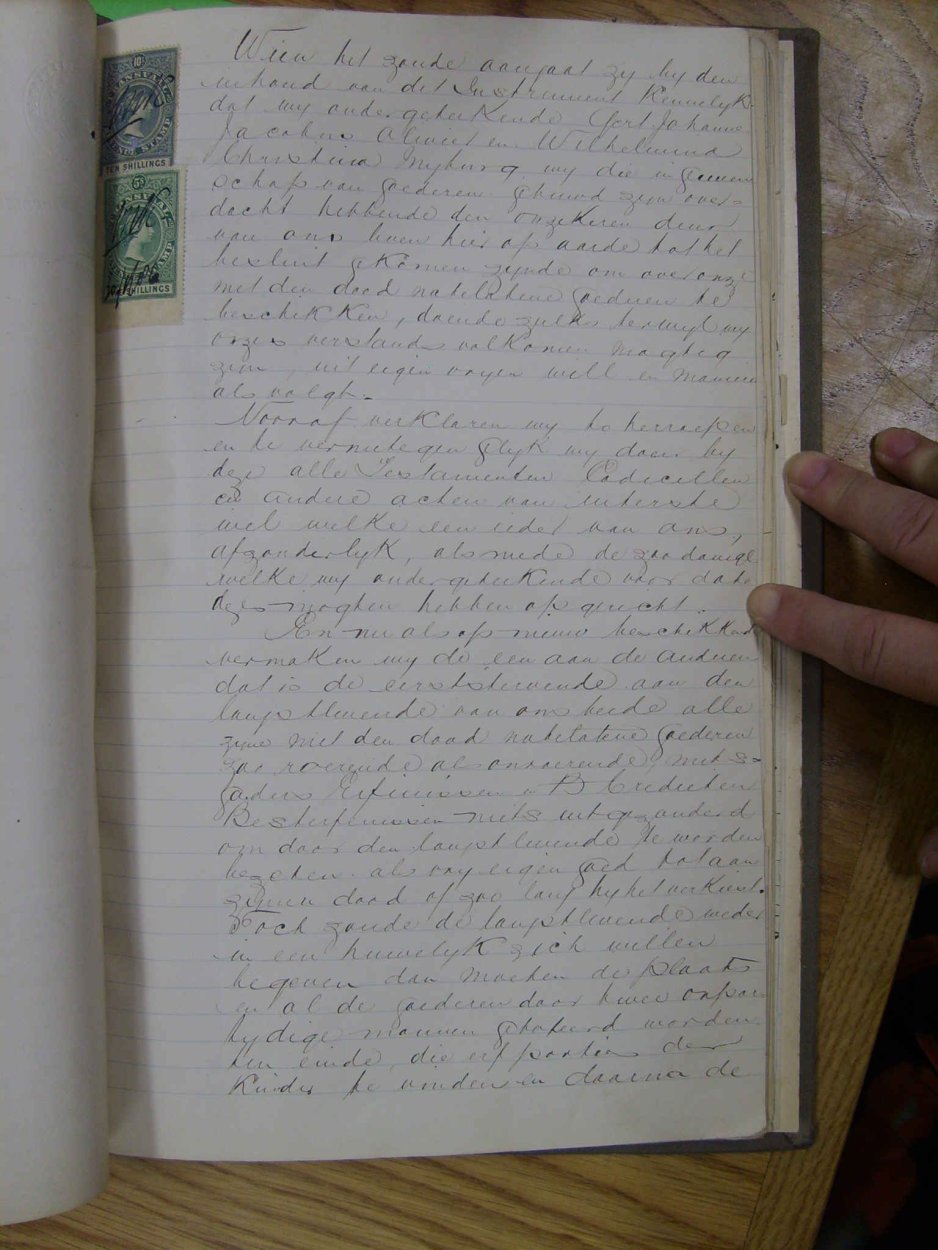 TRANSVAAL
TEN SHILLINGS
TRANSVAAL
SHILLINGS
Wien het zoude aangaat zy by den
inhoud van dit Instrument Kennelyk
dat wy ondergeteekende Gert Johannes
Jacobus Oliviet en Wilhelmina
Christina Myburg, wy die in gemeen
schap van goederen gehuwd zyn over-
dacht hebbende den onzekeren duur
van ons leven hier op aarde tot het
besluit gekomen zynde om over onze
met den dood natelatene goederen te
beschikken, doende zulks terwyl wy
onzes verstands volkomen magtig
zyn, uit eigen vryen will en manier
als volgt.
Vooraf verklaren wy te herroepen
en te vernietegen gelyk wy doen by
deze alle Testamenten Codicillen
en andere acten van uiterste
wil welke een ieder van ons,
afzonderlyk, alsmede de zoodanige
welke wy ondergeteekende voor date
dezes mogten hebben opgericht.
En nu als op nieuw beschikkende
vermaken wy de een aan de anderen
dat is de eerststervende aan den
langstlevende van ons beide alle
zyne met den dood natelatene goederen
zoo roerende als onroerende, mits-
gaders Erfenissen Crediten
Besterfenissen niets uitgezonderd
om door den langstlevende te worden
bezeten als vry eigen goed tot aan
zynen dood of zoo lang hy het verkiest.
Toch zoude de langstlevende weder
in een huwelyk zich willen
begeven dan moeten de plaats
en al de goederen door twee onpar
tydige mannen getaxeerd worden
ten einde, die erfportien der
Kinder te vinden en daarna de